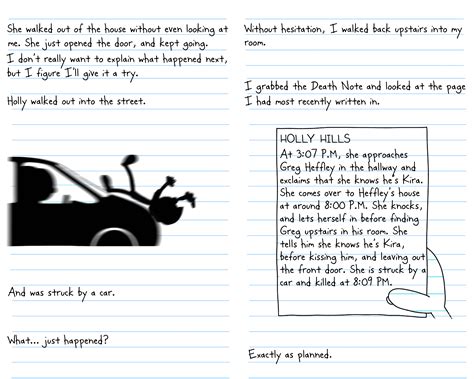 She walked out of the house without even looking at
me. She just opened the door, and kept going.
I don't really want to explain what happened next,
but I figure I'll give it a try.
Holly walked out into the street.
And was struck by a car.
What... just happened?
Without hesitation, I walked back upstairs into my
room.
I grabbed the Death Note and looked at the page
I had most recently written in.
HOLLY HILLS
At 3:07 P.M, she approaches
Greg Heffley in the hallway and
exclaims that she knows he's Kira.
She comes over to Heffley's house
at around 8:00 P.M. She knocks,
and lets herself in before finding
Greg upstairs in his room. She
tells him she knows he's Kira,
before kissing him, and leaving out
the front door. She is struck by a
car and killed at 8:09 P.M.
Exactly as planned.